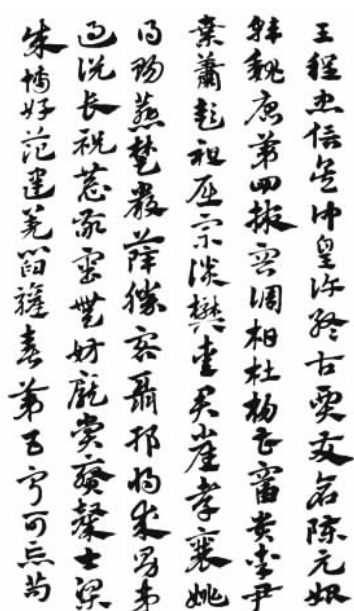 王程忠信吳仲皇許終古賈友倉陳元始
韓魏唐第四掖容調柏杜楊曹富貴李尹
桑蕭彭祖屈宗談樊愛君崔孝襄姚
得賜燕楚嚴薛勝客聶邗將求男弟
過說長祝恭敬審無妨龐賞贛士梁
博好范建羌閻驩喜第五寧可忘苟